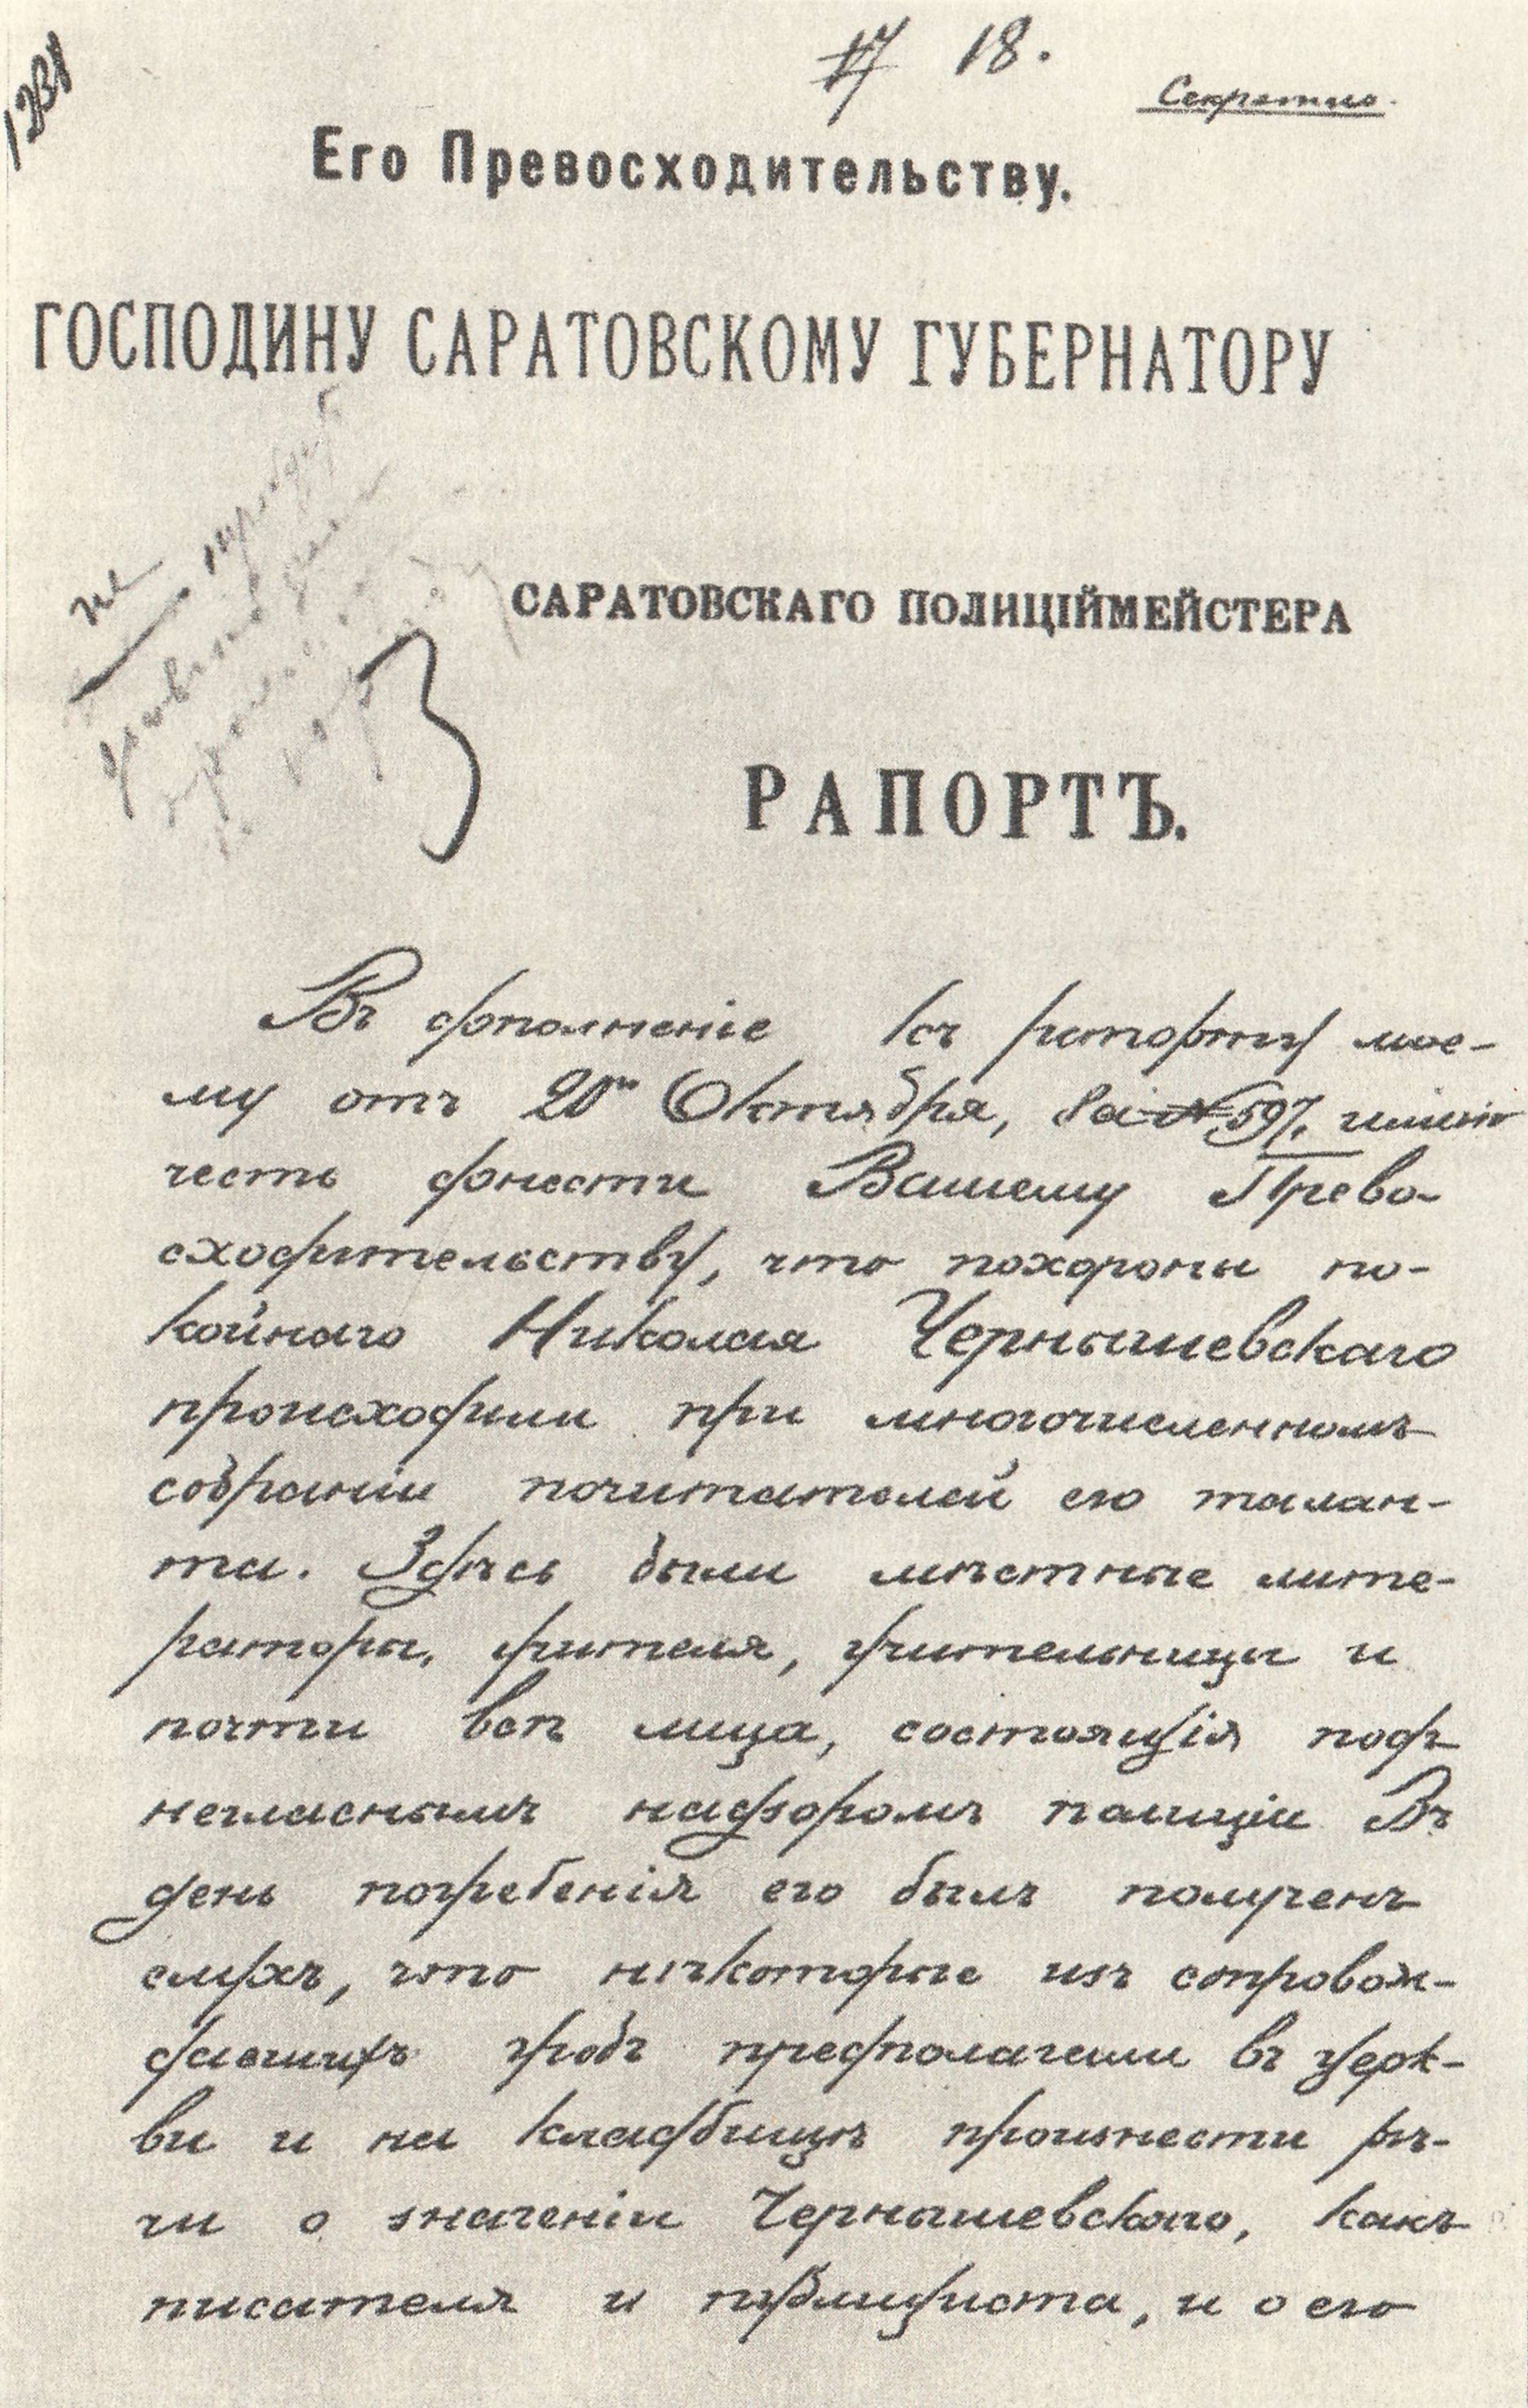 1231
17 18.
Секретно.
Его Превосходительству.
ГОСПОДИНУ САРАТОВСКОМУ ГУБЕРНАТОРУ
не
САРАТОВСКАГО ПОЛИЦІЙМЕЙСТЕРА
РАПОРТЪ.
Въ дополненіе къ рапорту мое-
му отъ 20го Октября, за № 597, имѣю
честь донести Вашему Прево-
сходительству, что похороны по-
койнаго Николая Чернышевскаго
происходили при многочисленномъ
собраніи почитателей его талан-
та. Здѣсь были мѣстные лите-
раторы, учителя, учительницы и
почти всѣ лица, состоящія подъ
негласнымъ надзоромъ полиціи Въ
день погребенія его былъ полученъ
слухъ, что нѣкоторые изъ сопровож-
давшихъ гробъ предполагали въ церк-
ви и на кладбищѣ произнести рѣ-
чи о значеніи Чернышевскаго, какъ
писателя и публициста, и о его